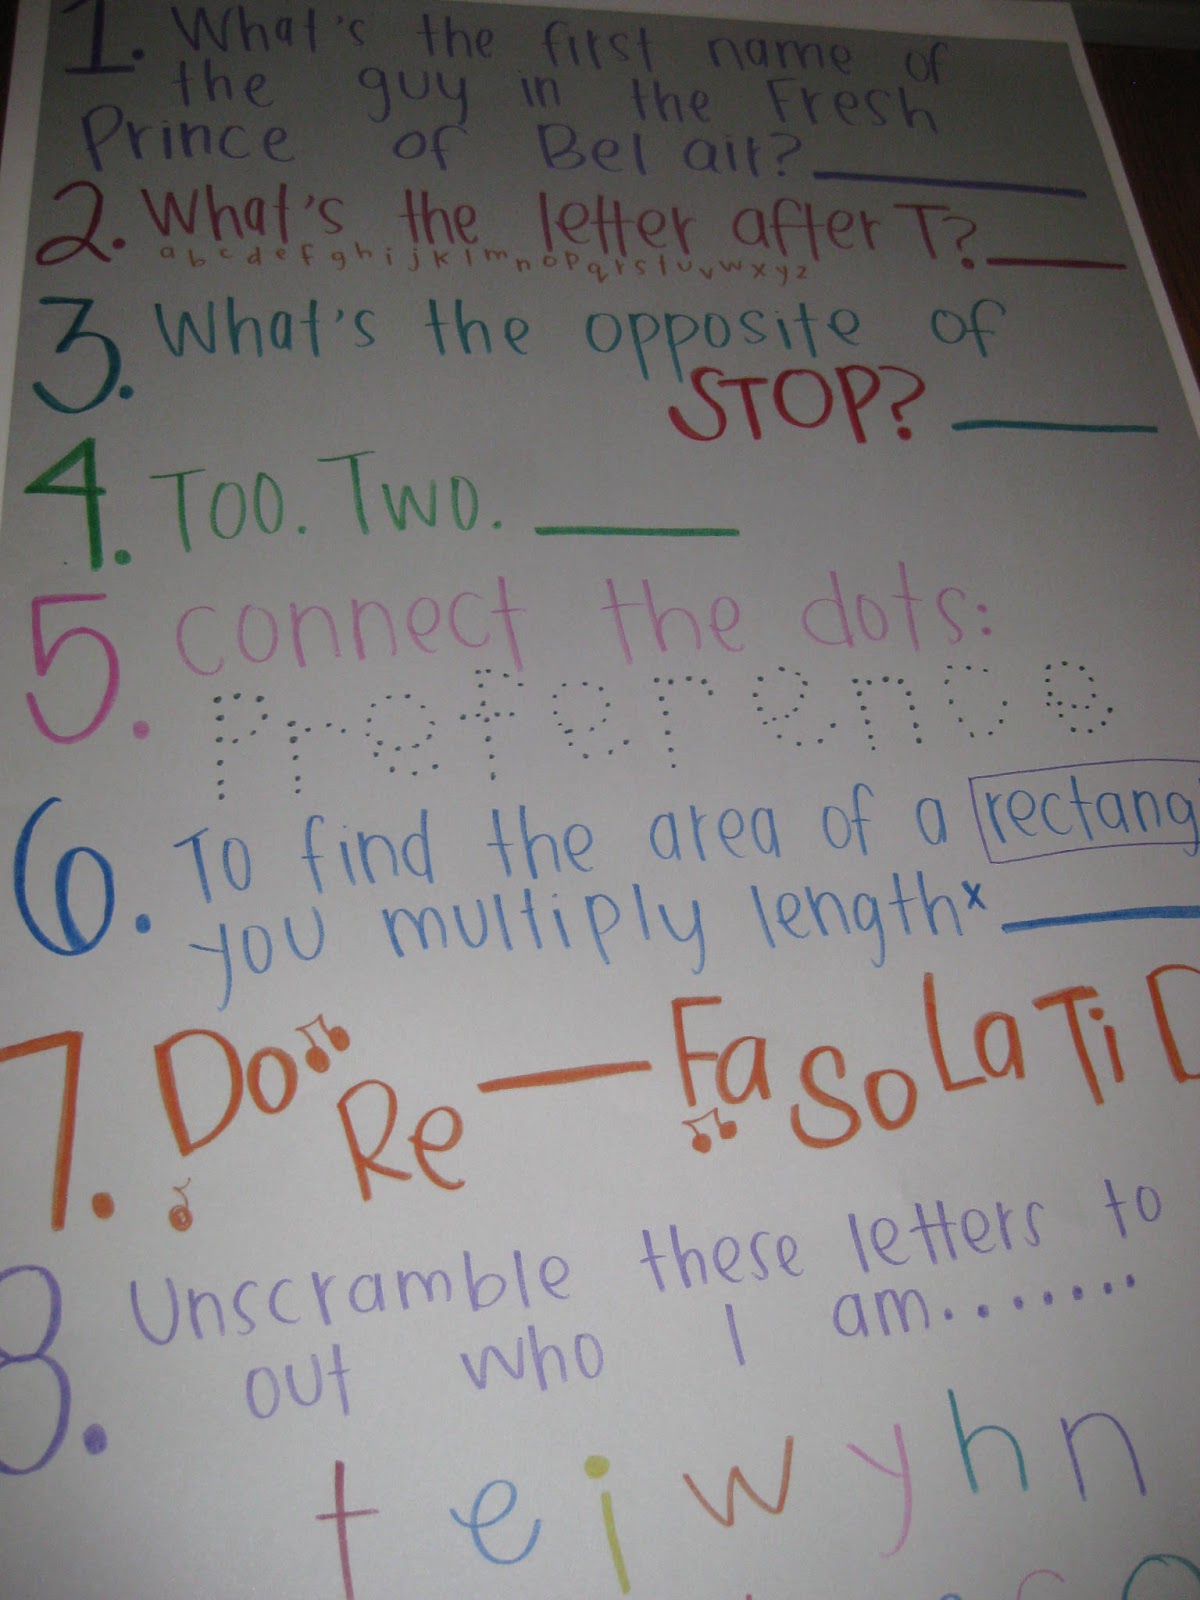 1. What's the first name of
the guy in the Fresh
Prince of Bel air?
2. What's the letter after T?
a b c d e f g h i j k l m n o p q r s t u v w x y z
3. What's the opposite of
STOP?
4. Too. Two.
5. Connect the dots:
Preference
6. To find the area of a rectang
you multiply length x
7. Do Re Fa So La Ti D
8. Unscramble these letters to
out who I am.......
t e i w y h n